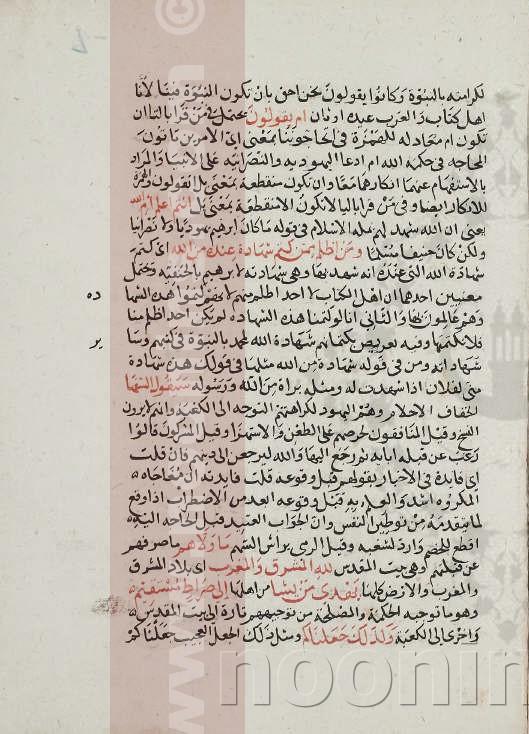 لكرامته بالنبوة وكانوا يقولون نحن احق بان تكون النبوة فينا لانا
اهل كتاب والعرب عبدة اوثان ام يقولون يحتمل في من قرا بالتا ان
تكون ام معادلة للهمزة في اتحاجوننا بمعنى اي الامرين تاتون
المحاجه في حكمة الله ام ادعا اليهوديه والنصرانيه على الانبيا والمراد
بالاستفهام عنهما انكارهما معا وان تكون منقطعة بمعنى بل اتقولون والهمزة
للانكار ايضا وفي من قرا باليا لا تكون الا منقطعة بمعنى بل اانتم اعلم ام الله
يعني ان الله شهد لهم بملة الاسلام في قوله ما كان ابرهيم يهوديا ولا نصرانيا
ولكن كان حنيفا مسلما ومن اظلم ممن كتم شهادة عنده من الله اي كتم
شهادة الله التي عنده انه شهد بها وهي شهادته لابرهيم بالحنيفية ويحتمل
معنيين احدهما ان اهل الكتاب لا احد اظلم منهم لانهم كتموا هذه الشهادة
وهم عالمون بها والثاني انا لو كتمنا هذه الشهادة لم يكن احد اظلم منا
فلا نكتمها وفيه تعريض بكتمانهم شهادة الله لمحمد بالنبوة في كتبهم وسا
شهاداته ومن في قوله شهادة من الله مثلها في قولك هذه شهادة
مني لفلان اذا شهدت له ومثله براة من الله ورسوله سيقول السفها
الخفاف الاحلام وهم اليهود لكراهتهم التوجه الى الكعبة وانهم لا يرون
النسخ وقيل المنافقون لحرصهم على الطعن والاستهزا وقيل المشركون قالوا
رغب عن قبلة ابايه ثم رجع اليها والله ليرجعن الى دينهم فان قلت
اي فايدة في الاخبار بقولهم قبل وقوعه قلت فايدته ان مفاجاه
المكروه اشد والعلم به قبل وقوعه ابعد من الاضطراب اذا وقع
لما يتقدمه من توطين النفس وان الجواب العتيد قبل الحاجه اليه
اقطع للخصم وارد لشغبه وقبل الرمي يراش السهم ما ولاهم ما صرفهم
عن قبلتهم وهي بيت المقدس لله المشرق والمغرب اي بلاد المشرق
والمغرب والارض كلها يهدي من يشا من اهلها الى صراط مستقيم
وهو ما توجبه الحكمة والمصلحة من توجيههم تارة الى بيت المقدس
واخرى الى الكعبة وكذلك جعلناكم ومثل ذلك الجعل العجيب جعلناكم
ده
ير
www.
©
noonin